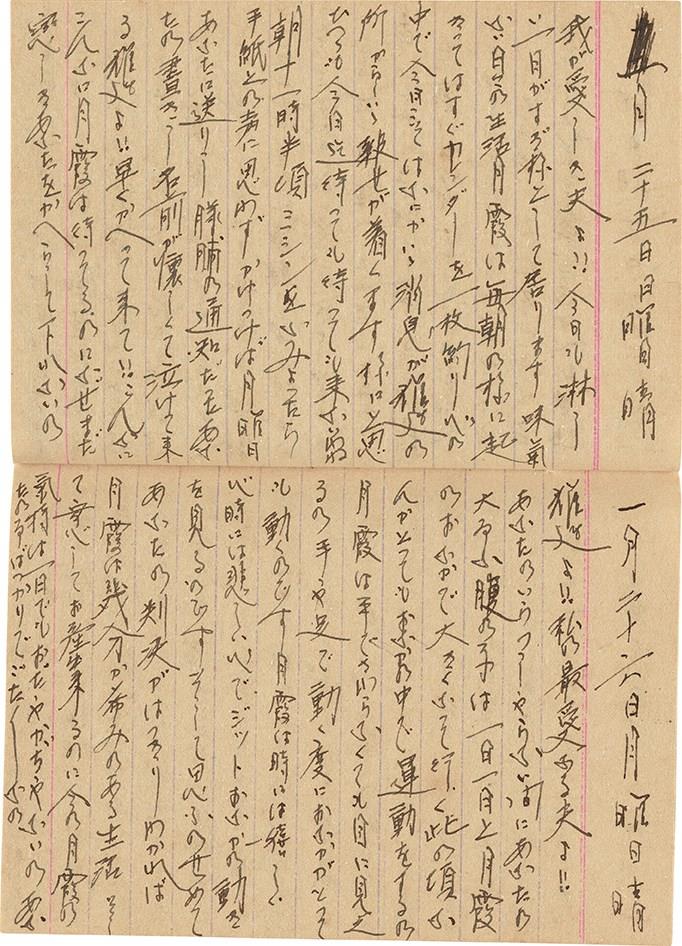 月 二十五日 日曜日 晴
我が愛しき夫よ!! 今日も淋し
い一日がすぎ様として居ります 味氣
ない日永の生活 月霞は毎朝の様に起
きてはすぐカレンダーを一枚釣り心の
中で今日こそはなにかいゝ消息が雅文の
所からいゝ報せが着くます様にと思
ひつゝも今日迄待っても待っても来ない
朝十一時半頃ミシンをふみよったら
手紙との声に思わずかけつけば月霞
あなたに送りし豚脯の通知だった
たの書きし名前が懐しくて泣けて来
る 雅文よ!! 早くかへって来て!! こんなに
こんなに月霞は待ってるのになぜまだ
恋しきあなたをかへらして下れないの
一月二十六日 月曜日 晴
雅文よ!! 私の最愛なる夫よ!!
あなたのいらっしゃらない間にあなたの
大きな腹の子は一日一日と月霞
のおなかで大きくなって行く 此の頃
んかとってもおなかの中で運動をするの
月霞は手でさわらなくても目に見え
るの 手や足で動く度におなかがとって
も動くのです 月霞は時には嬉しい
心 時には悲しい心でジットおなかの動き
を見るのです そうして思ふのせめて
あなたの判決がはっきりわかれば
月霞は幾分か希みのある生活 そし
て安心してお産出来るのに 今の月霞の
氣持は一日でもおだやかぢゃないの
たのばっかりでごたごたしたの